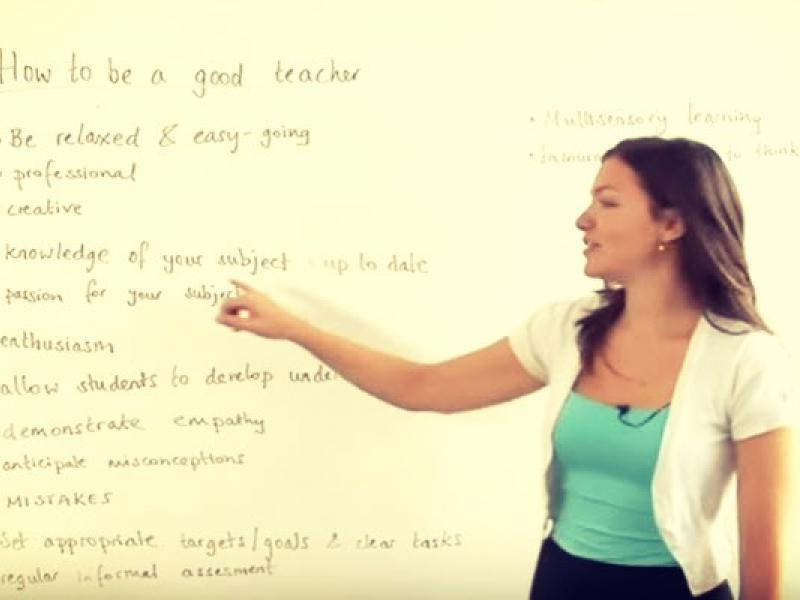 How to be a good teacher
• Be relaxed & easy-going
• professional
creative
knowledge of your subject - up to date
passion for your subject
enthusiasm
allow students to develop
demonstrate empathy
anticipate misconceptions
MISTAKES
Set appropriate targets/goals & clear tasks
regular informal assesment
• Multisensory learning
• to think